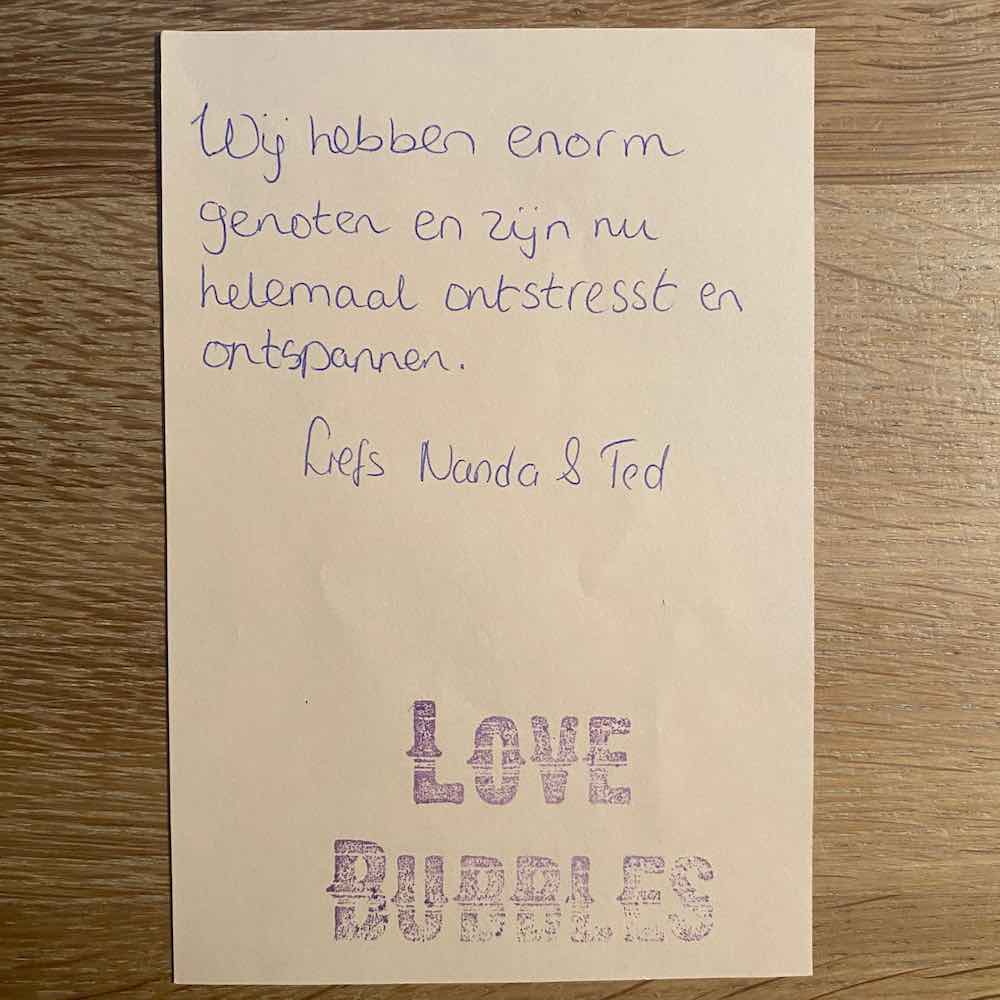 Wij hebben enorm
genoten en zijn nu
helemaal ontstresst en
ontspannen.
Liefs Nanda & Ted
LOVE
BUBBLES